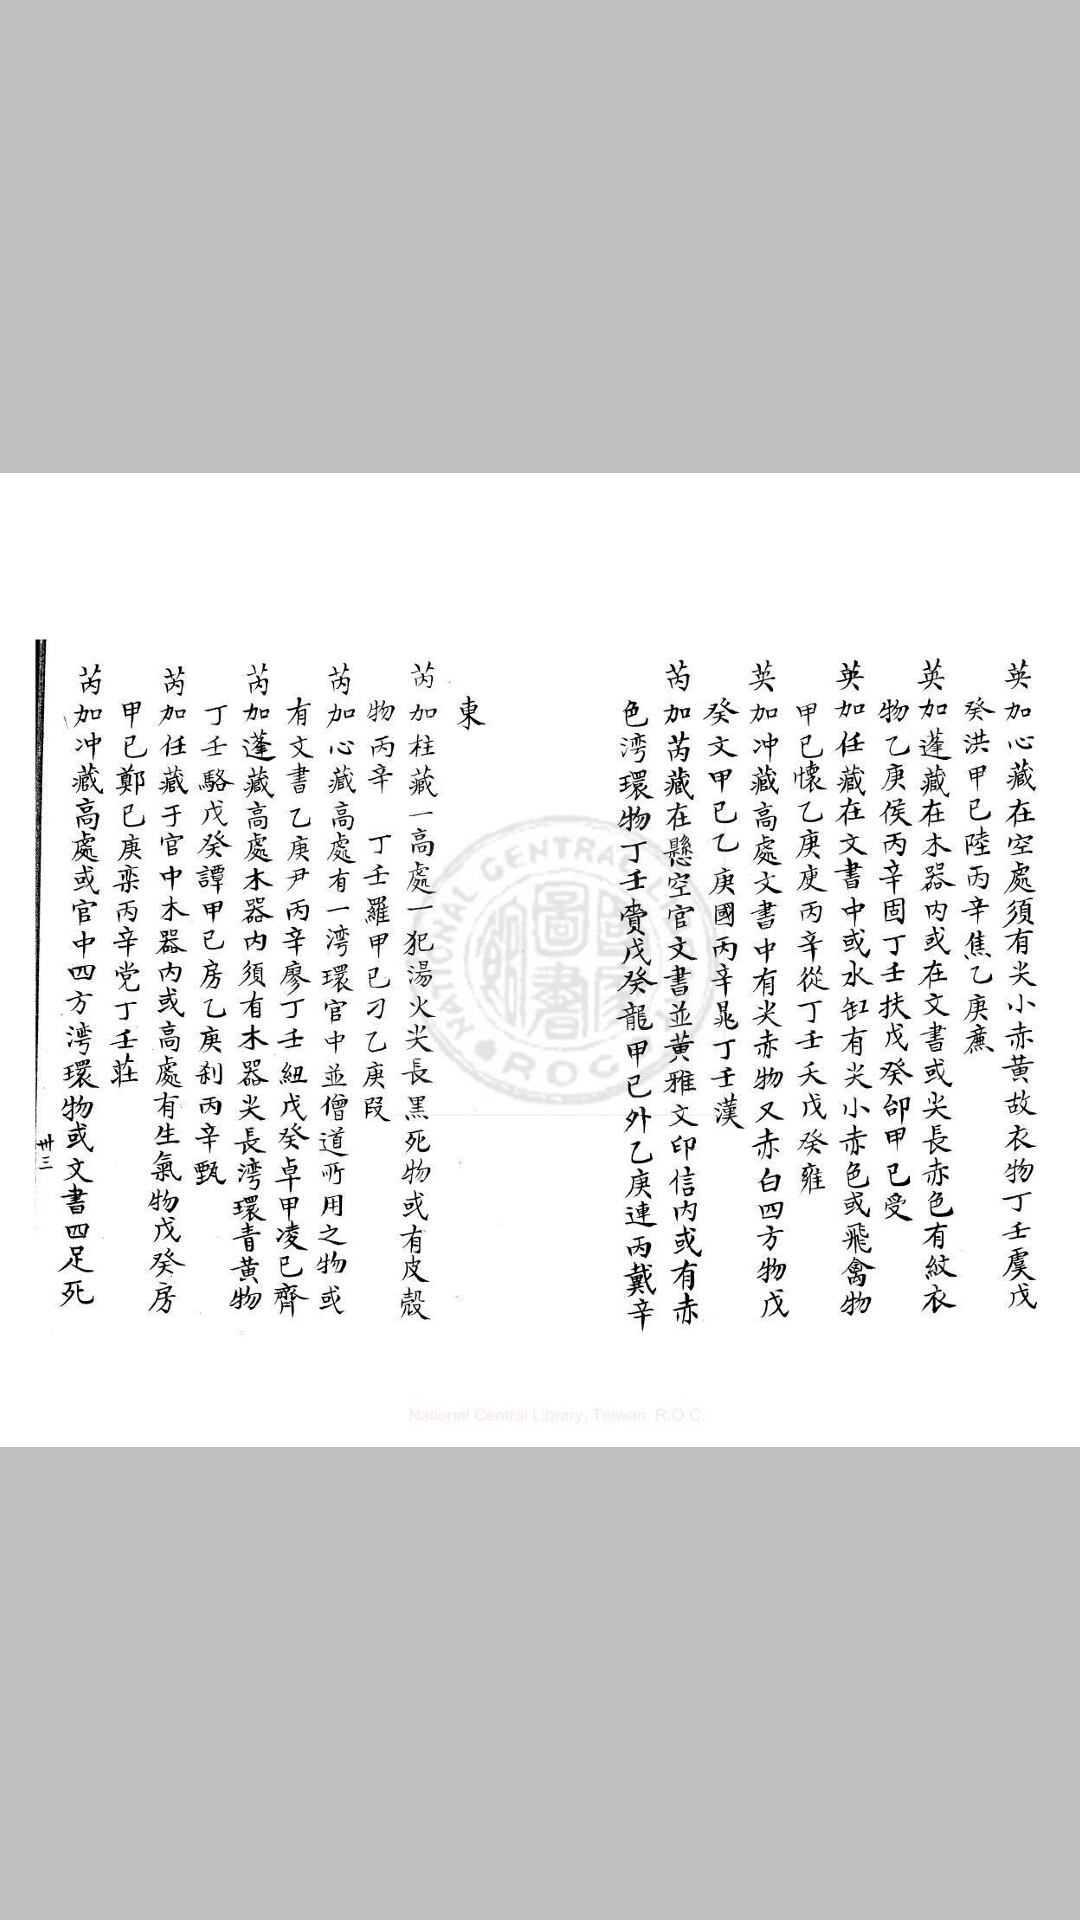 英加心藏在空處須有尖小赤黃故衣物丁壬虞戊
癸洪甲已陸丙辛焦乙庚薦
英加蓬藏在木器内或在文書或尖長赤色有紋衣
物乙庚侯丙辛固丁壬扶戊癸郃甲已受
英加任藏在文書中或水缸有尖小赤色或飛禽物
甲已懷乙庚庾丙辛從丁壬夭戊癸雍
英加冲藏高處文書中有尖赤物又赤白四方物戊
癸文甲已乙庚國丙辛晁丁壬漢
芮加芮藏在懸空官文書並黃雅文印信内或有赤
色湾環物丁壬費戊癸龍甲已外乙庚連丙戴辛
東
芮加柱藏一高處一犯湯火尖長黑死物或有皮殼
物丙辛 丁壬羅甲已刁乙庚叚
芮加心藏高處有一湾環官中並僧道所用之物或
有文書乙庚尹丙辛廖丁壬紐戊癸卓甲凌已齊
芮加蓬藏高處木器内須有木器尖長湾環青黃物
丁壬駱戊癸譚甲已房乙庚刹丙辛甄
芮加任藏于官中木器内或高處有生氣物戊癸房
甲已鄭已庚栾丙辛党丁壬莊
芮加冲藏高處或官中四方湾環物或文書四足死
卅三
NATIONAL CENTRAL
R.O.C
國家圖書館
National Central Library, Taiwan, R.O.C.